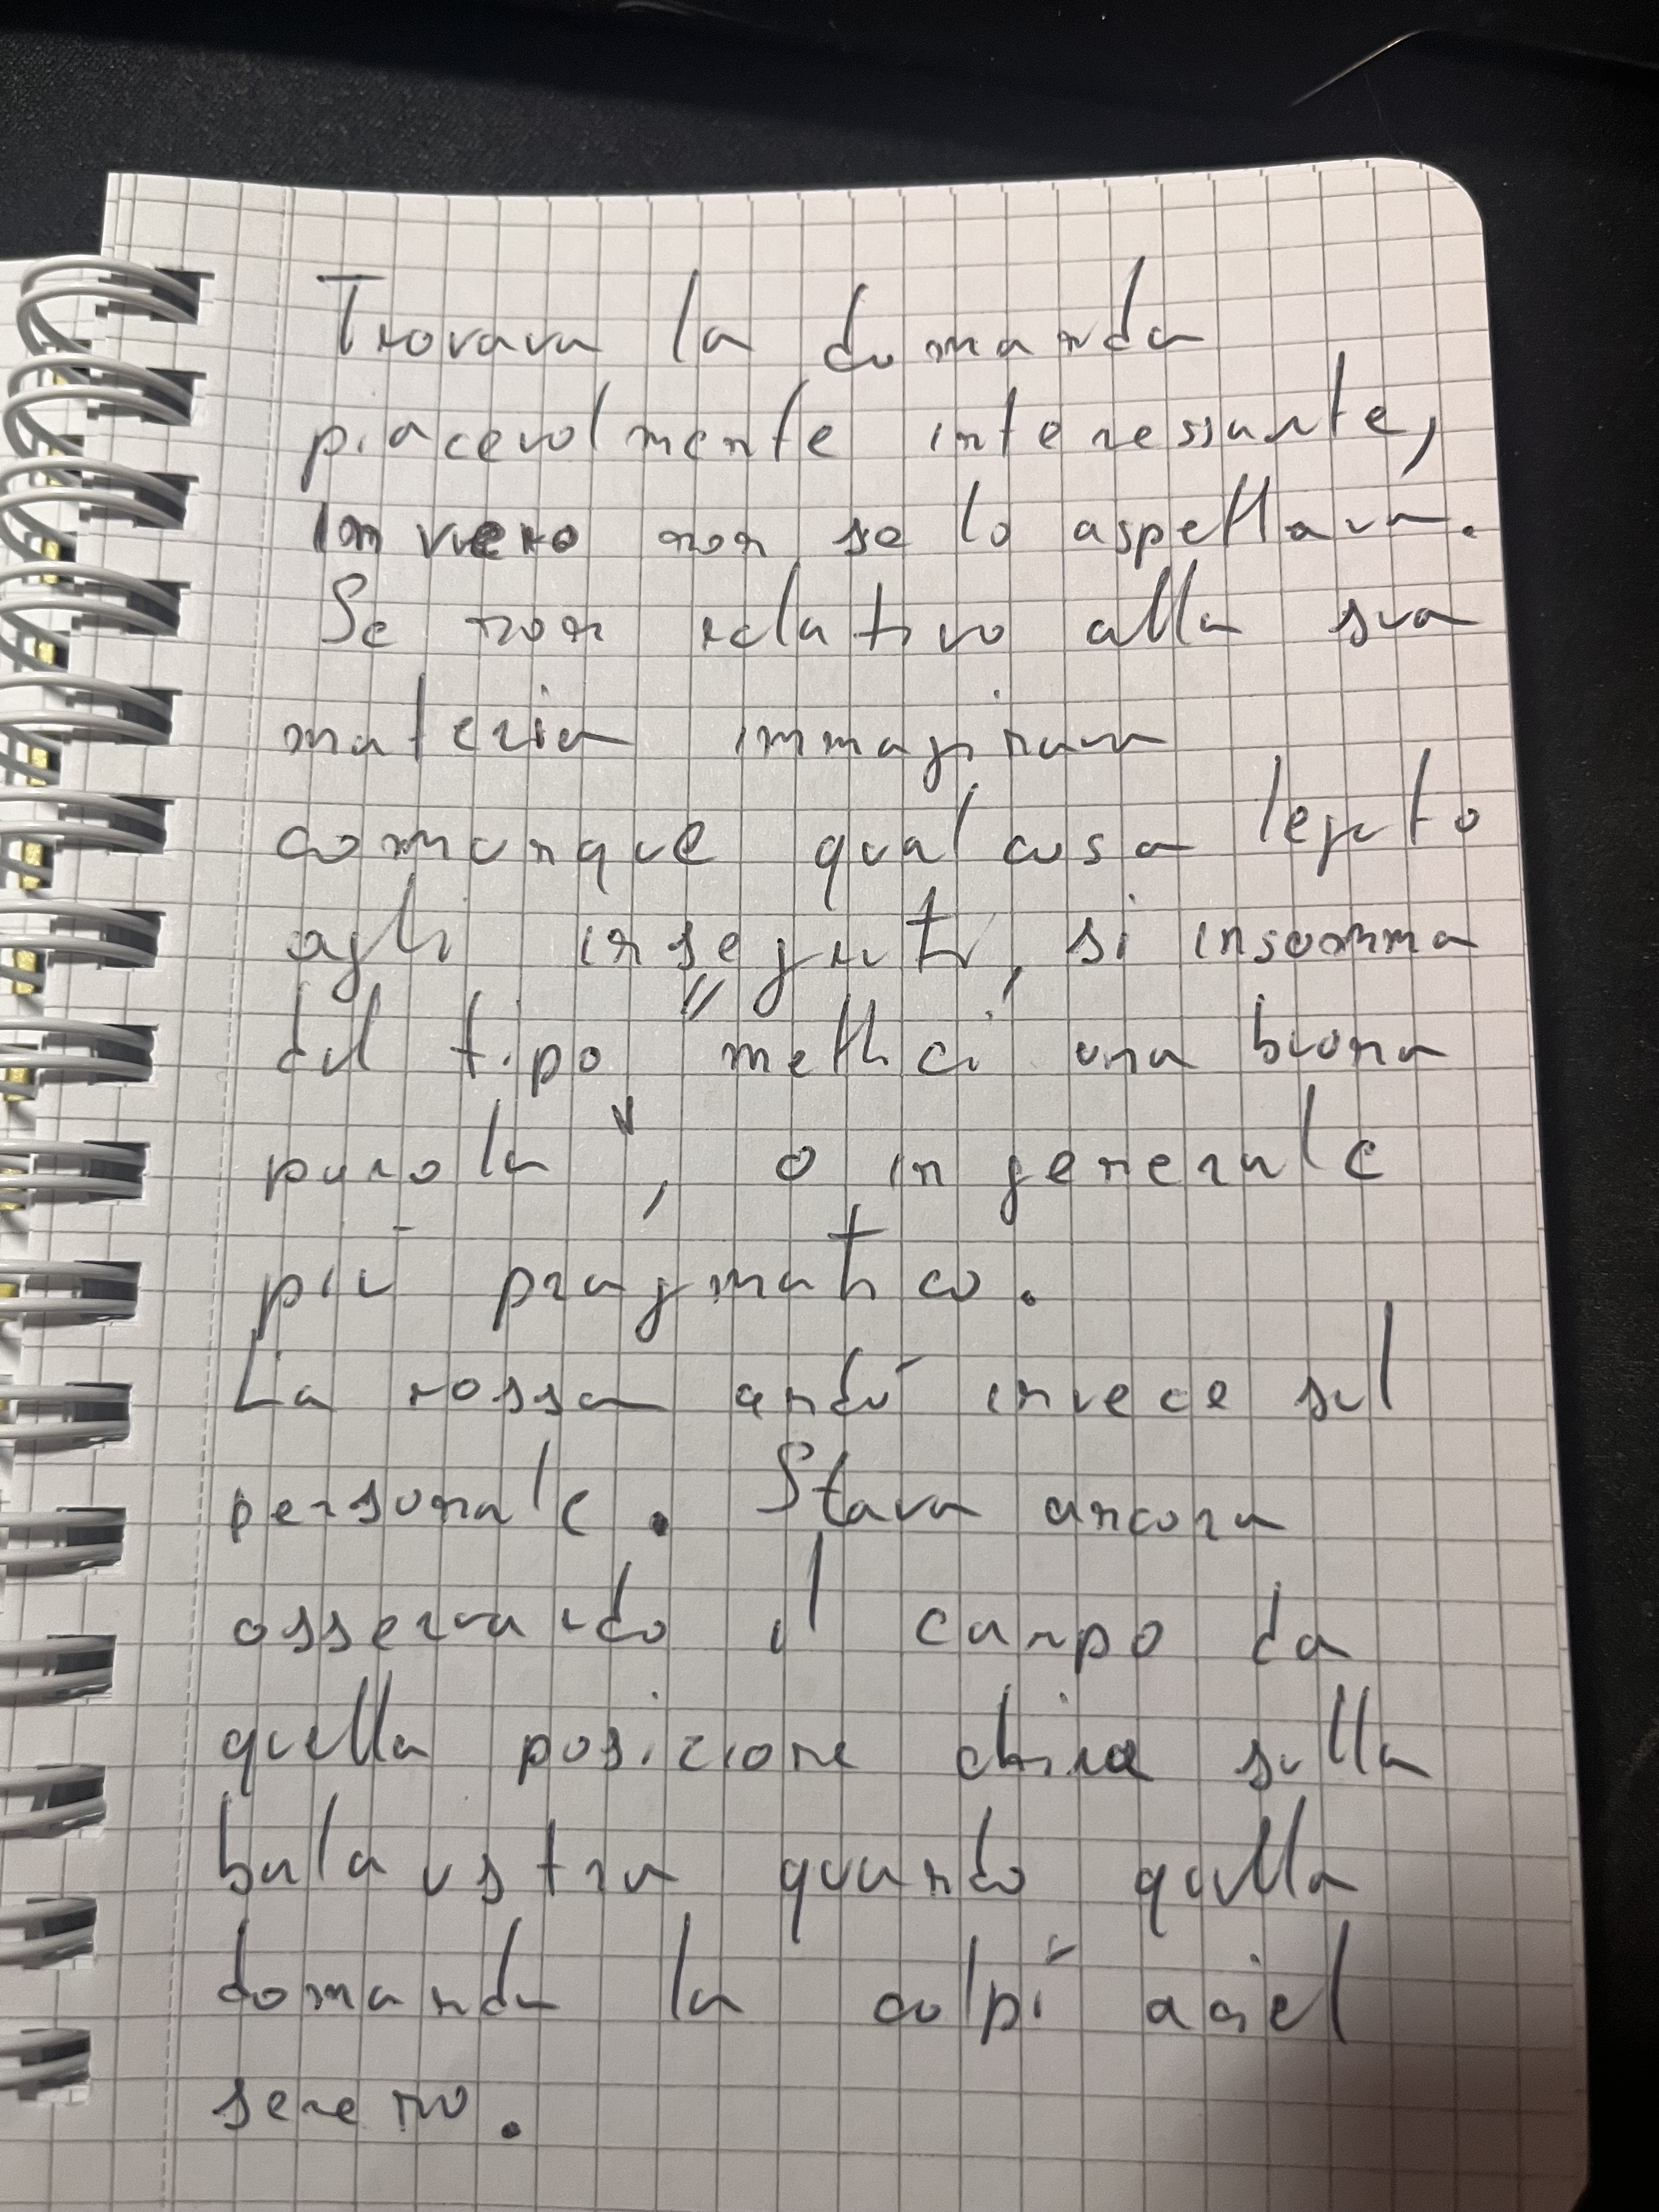 Trovava la domanda
piacevolmente interessante,
in vero non se lo aspettava.
Se non relativo alla sua
materia immaginava
comunque qualcosa legato
agli insegnati, si insomma
del tipo "mettici una buona
parola", o in generale
più pragmatico.
La rossa andò invece sul
personale. Stava ancora
osservando il campo da
quella posizione china sulla
balaustra quando quella
domanda la colpì a ciel
sereno.